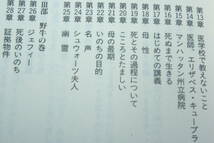 第13章 医学校で教えないこと
第14章 医師、エリザベス・キューブラ
第15章 マンハッタン州立病院
第16章 死ぬまで生きる
第17章 はじめての講義
第18章 母性
第19章 死とその過程について
第20章 こころとたましい
第21章 母の最期
第22章 いのちの目的
第23章 名声
第24章 シュウォーツ夫人
第25章 幽霊
III部 野牛の巻
第26章 ジェフィー
第27章 死後のいのち
第28章 証拠物件